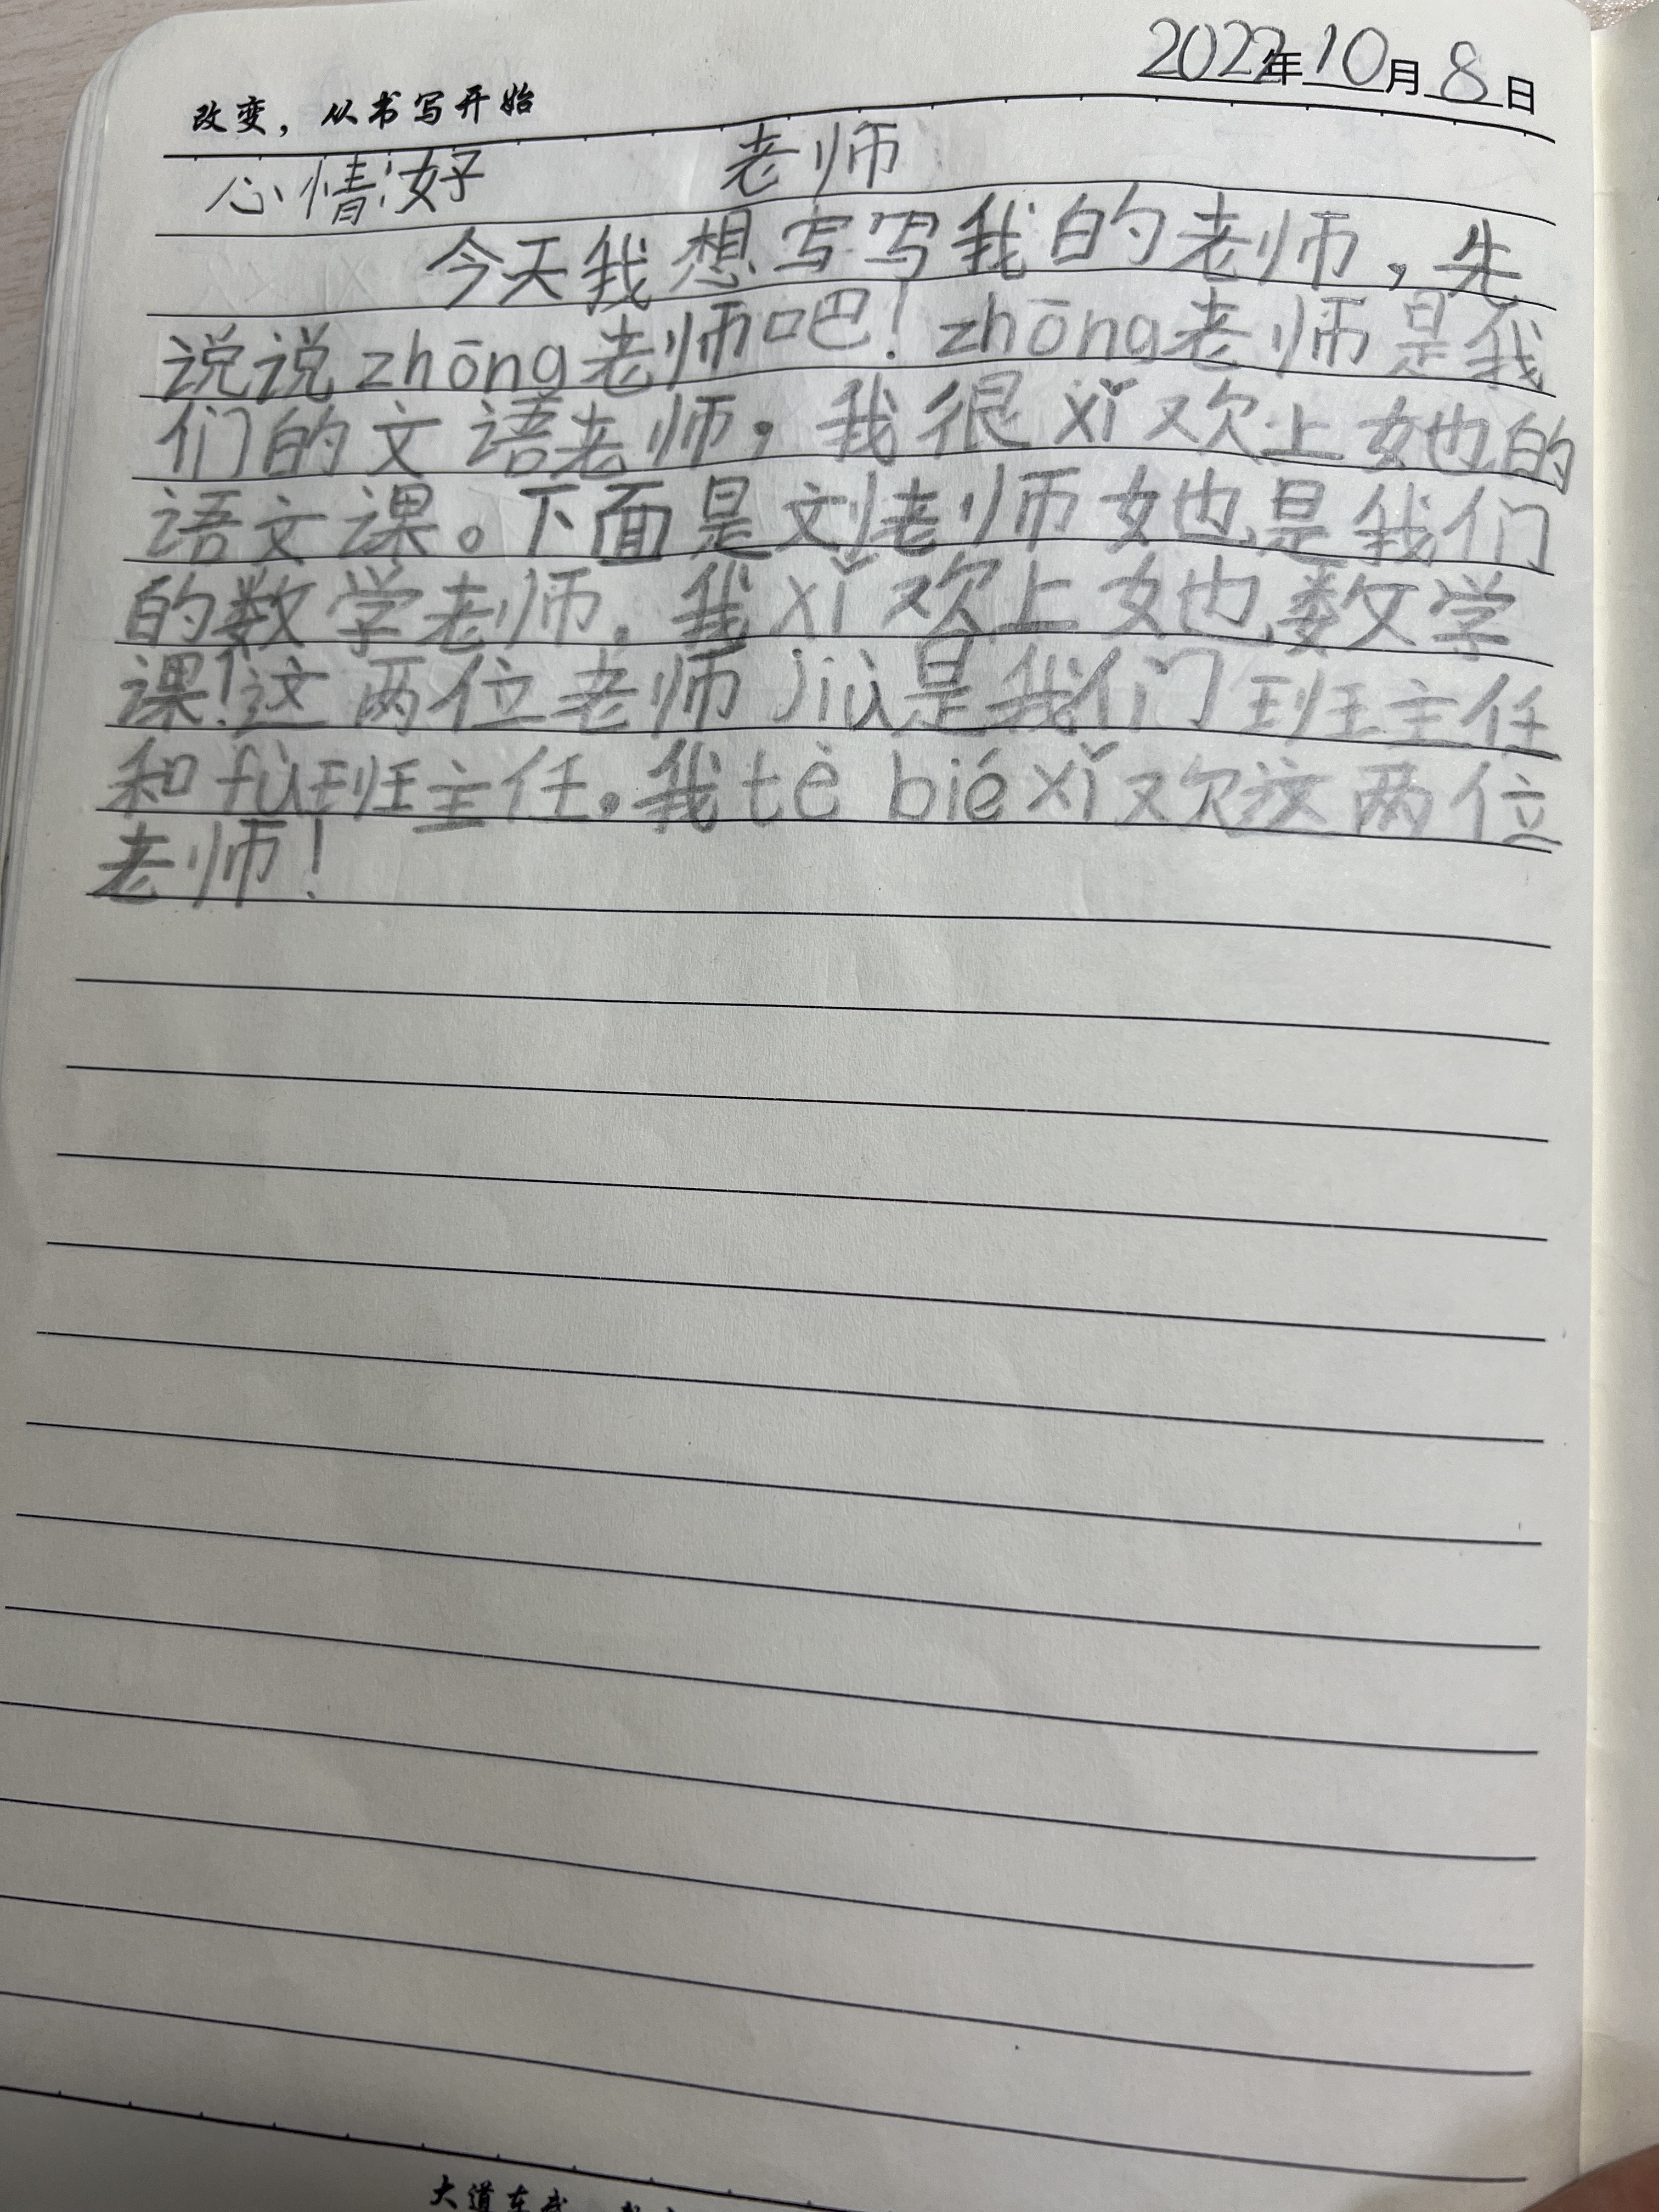 2022年10月8日
改变，从书写开始
心情:好 老师
今天我想写写我的老师，先
说说zhōng老师吧！zhōng老师是我
们的文语老师，我很xǐ欢上她的
语文课。下面是刘老师她是我们
的数学老师。我xǐ欢上她数学
课！这两位老师jiù是我们班主任
和fù班主任。我tè bié xǐ欢这两位
老师！
大道在我